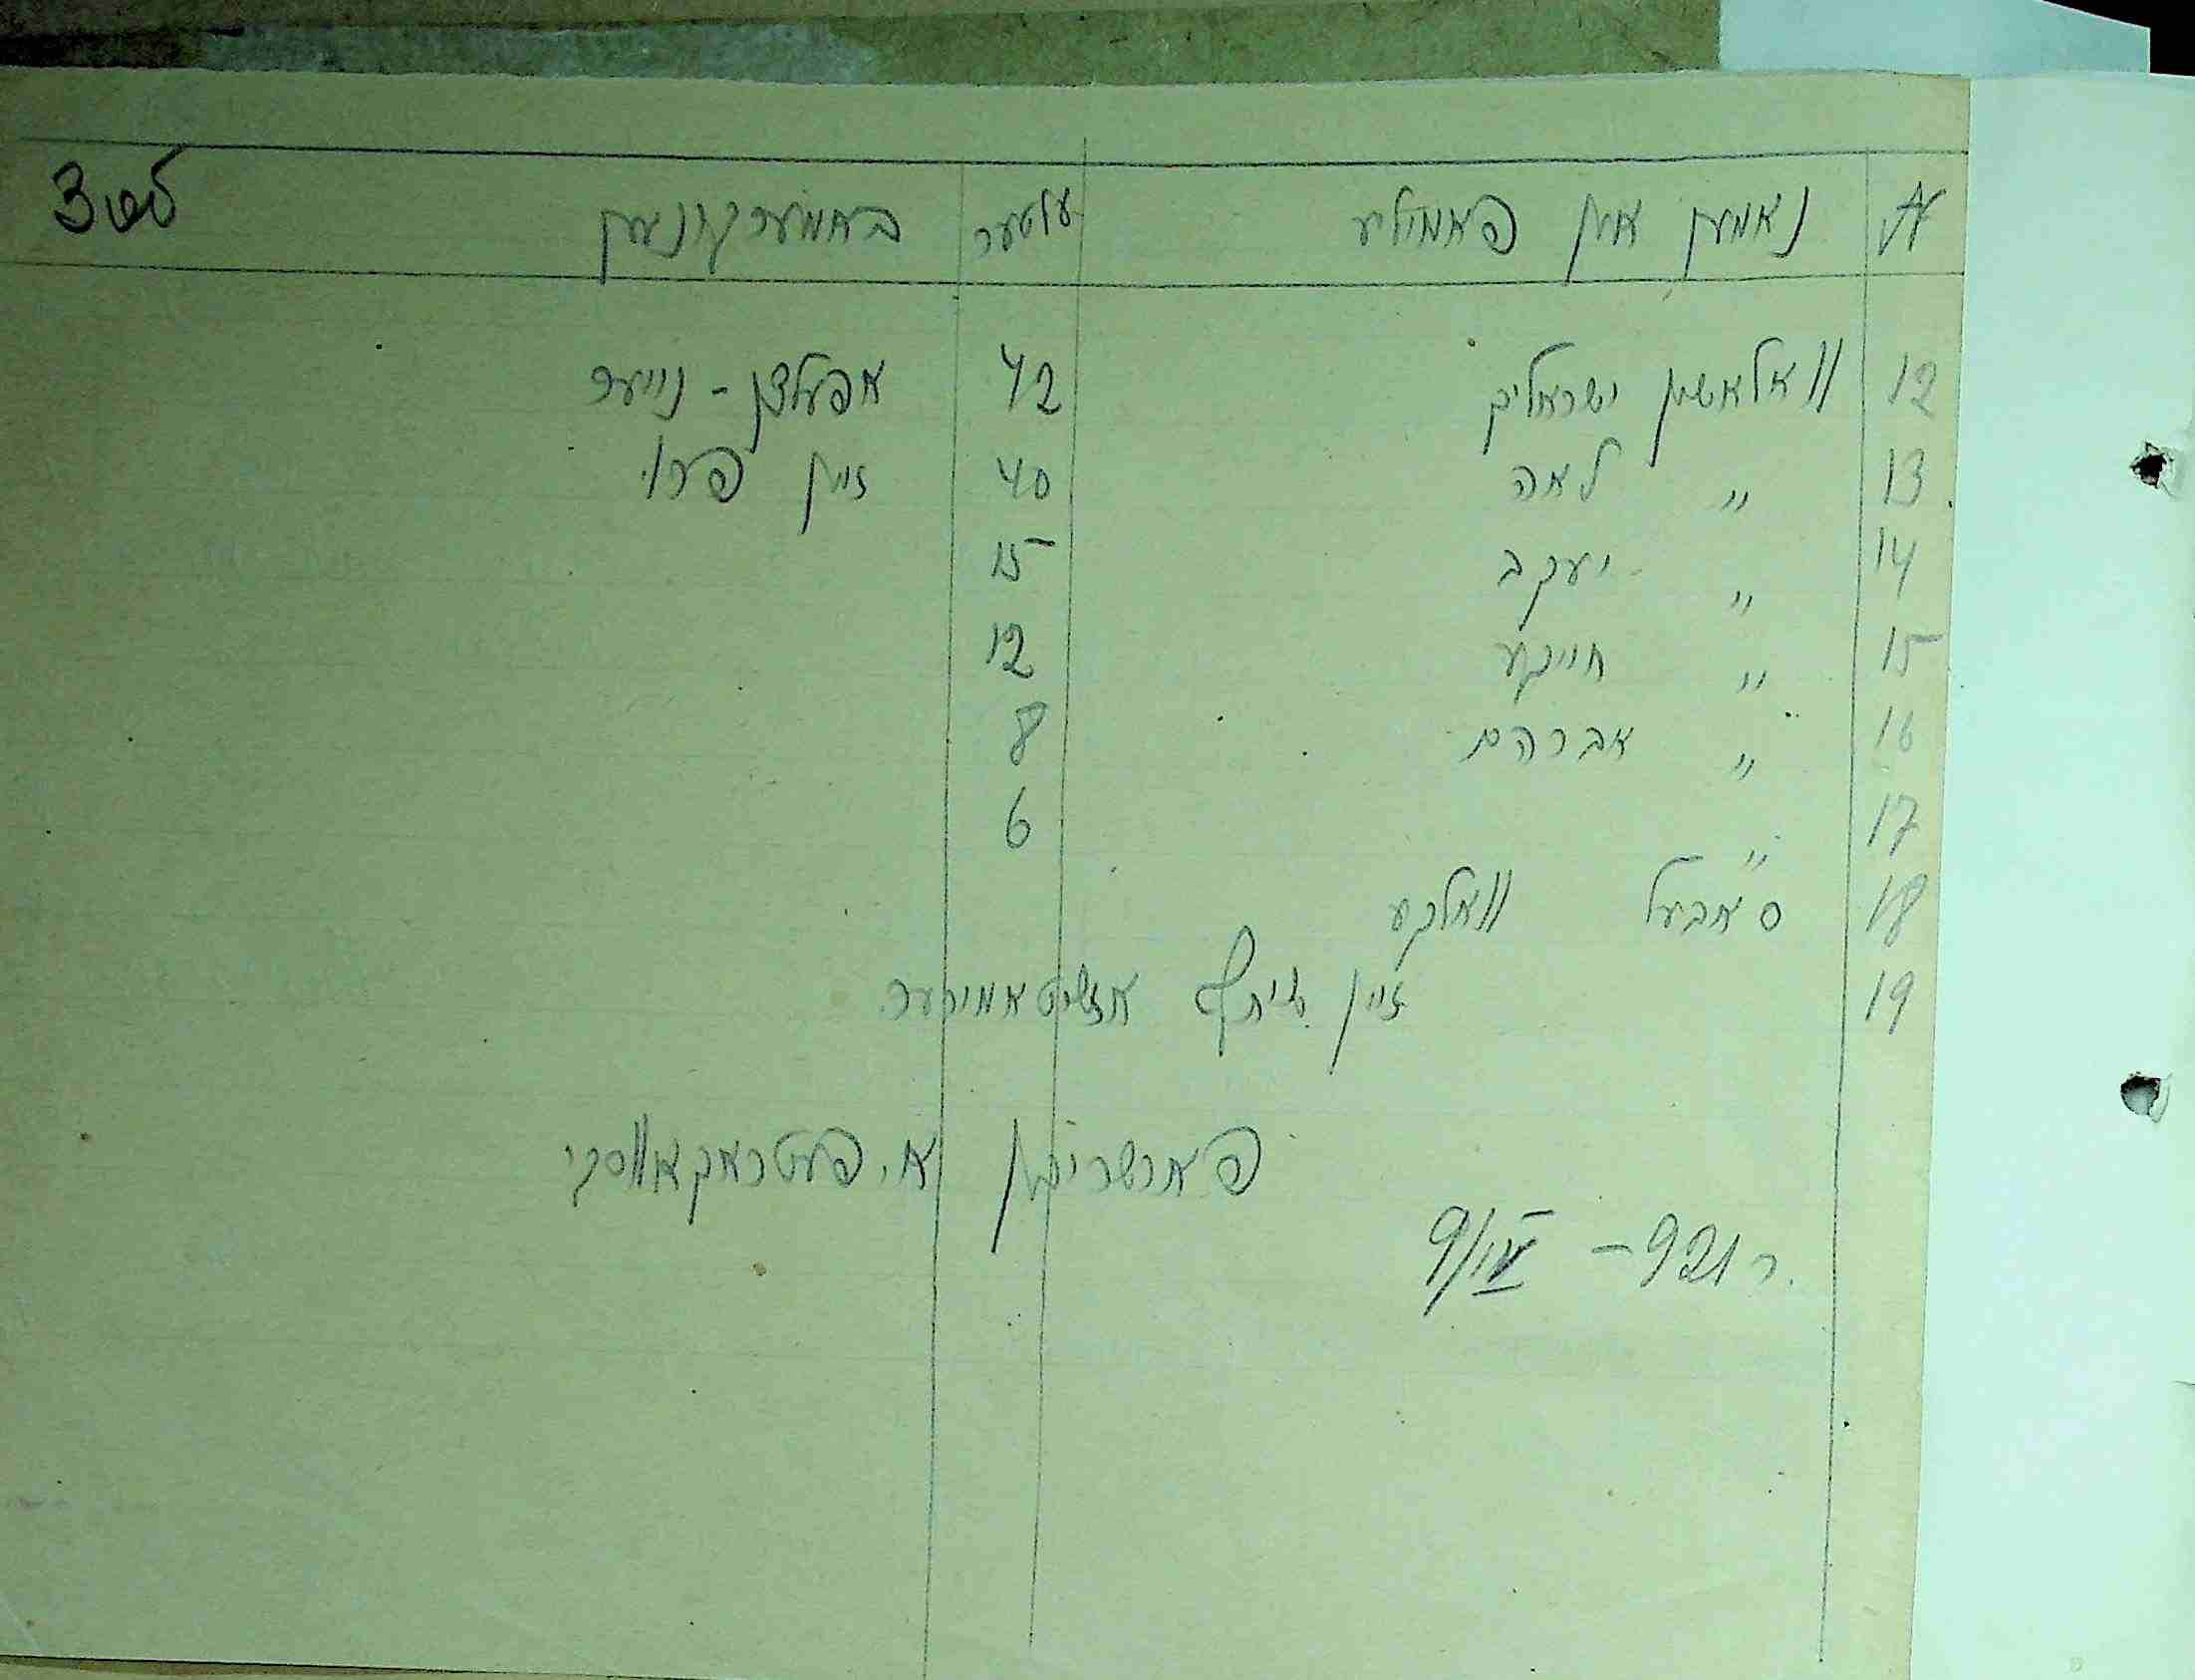 № נאמען און פאמיליע עלטער באמערקונגען 3
12 וואלאשין ישראליק 42 אפעלצין - נייער
13 " לאה 40 זיין פרוי
14 " יעקב 15
15 " חייקע 12
16 " אברהם 8
17 " 6
18 סאבעל וואלקע
19 זיין שותף אזשיטאמירער
פארשריבן א. פעטראקאווסקי
9/IV - 921 ר.